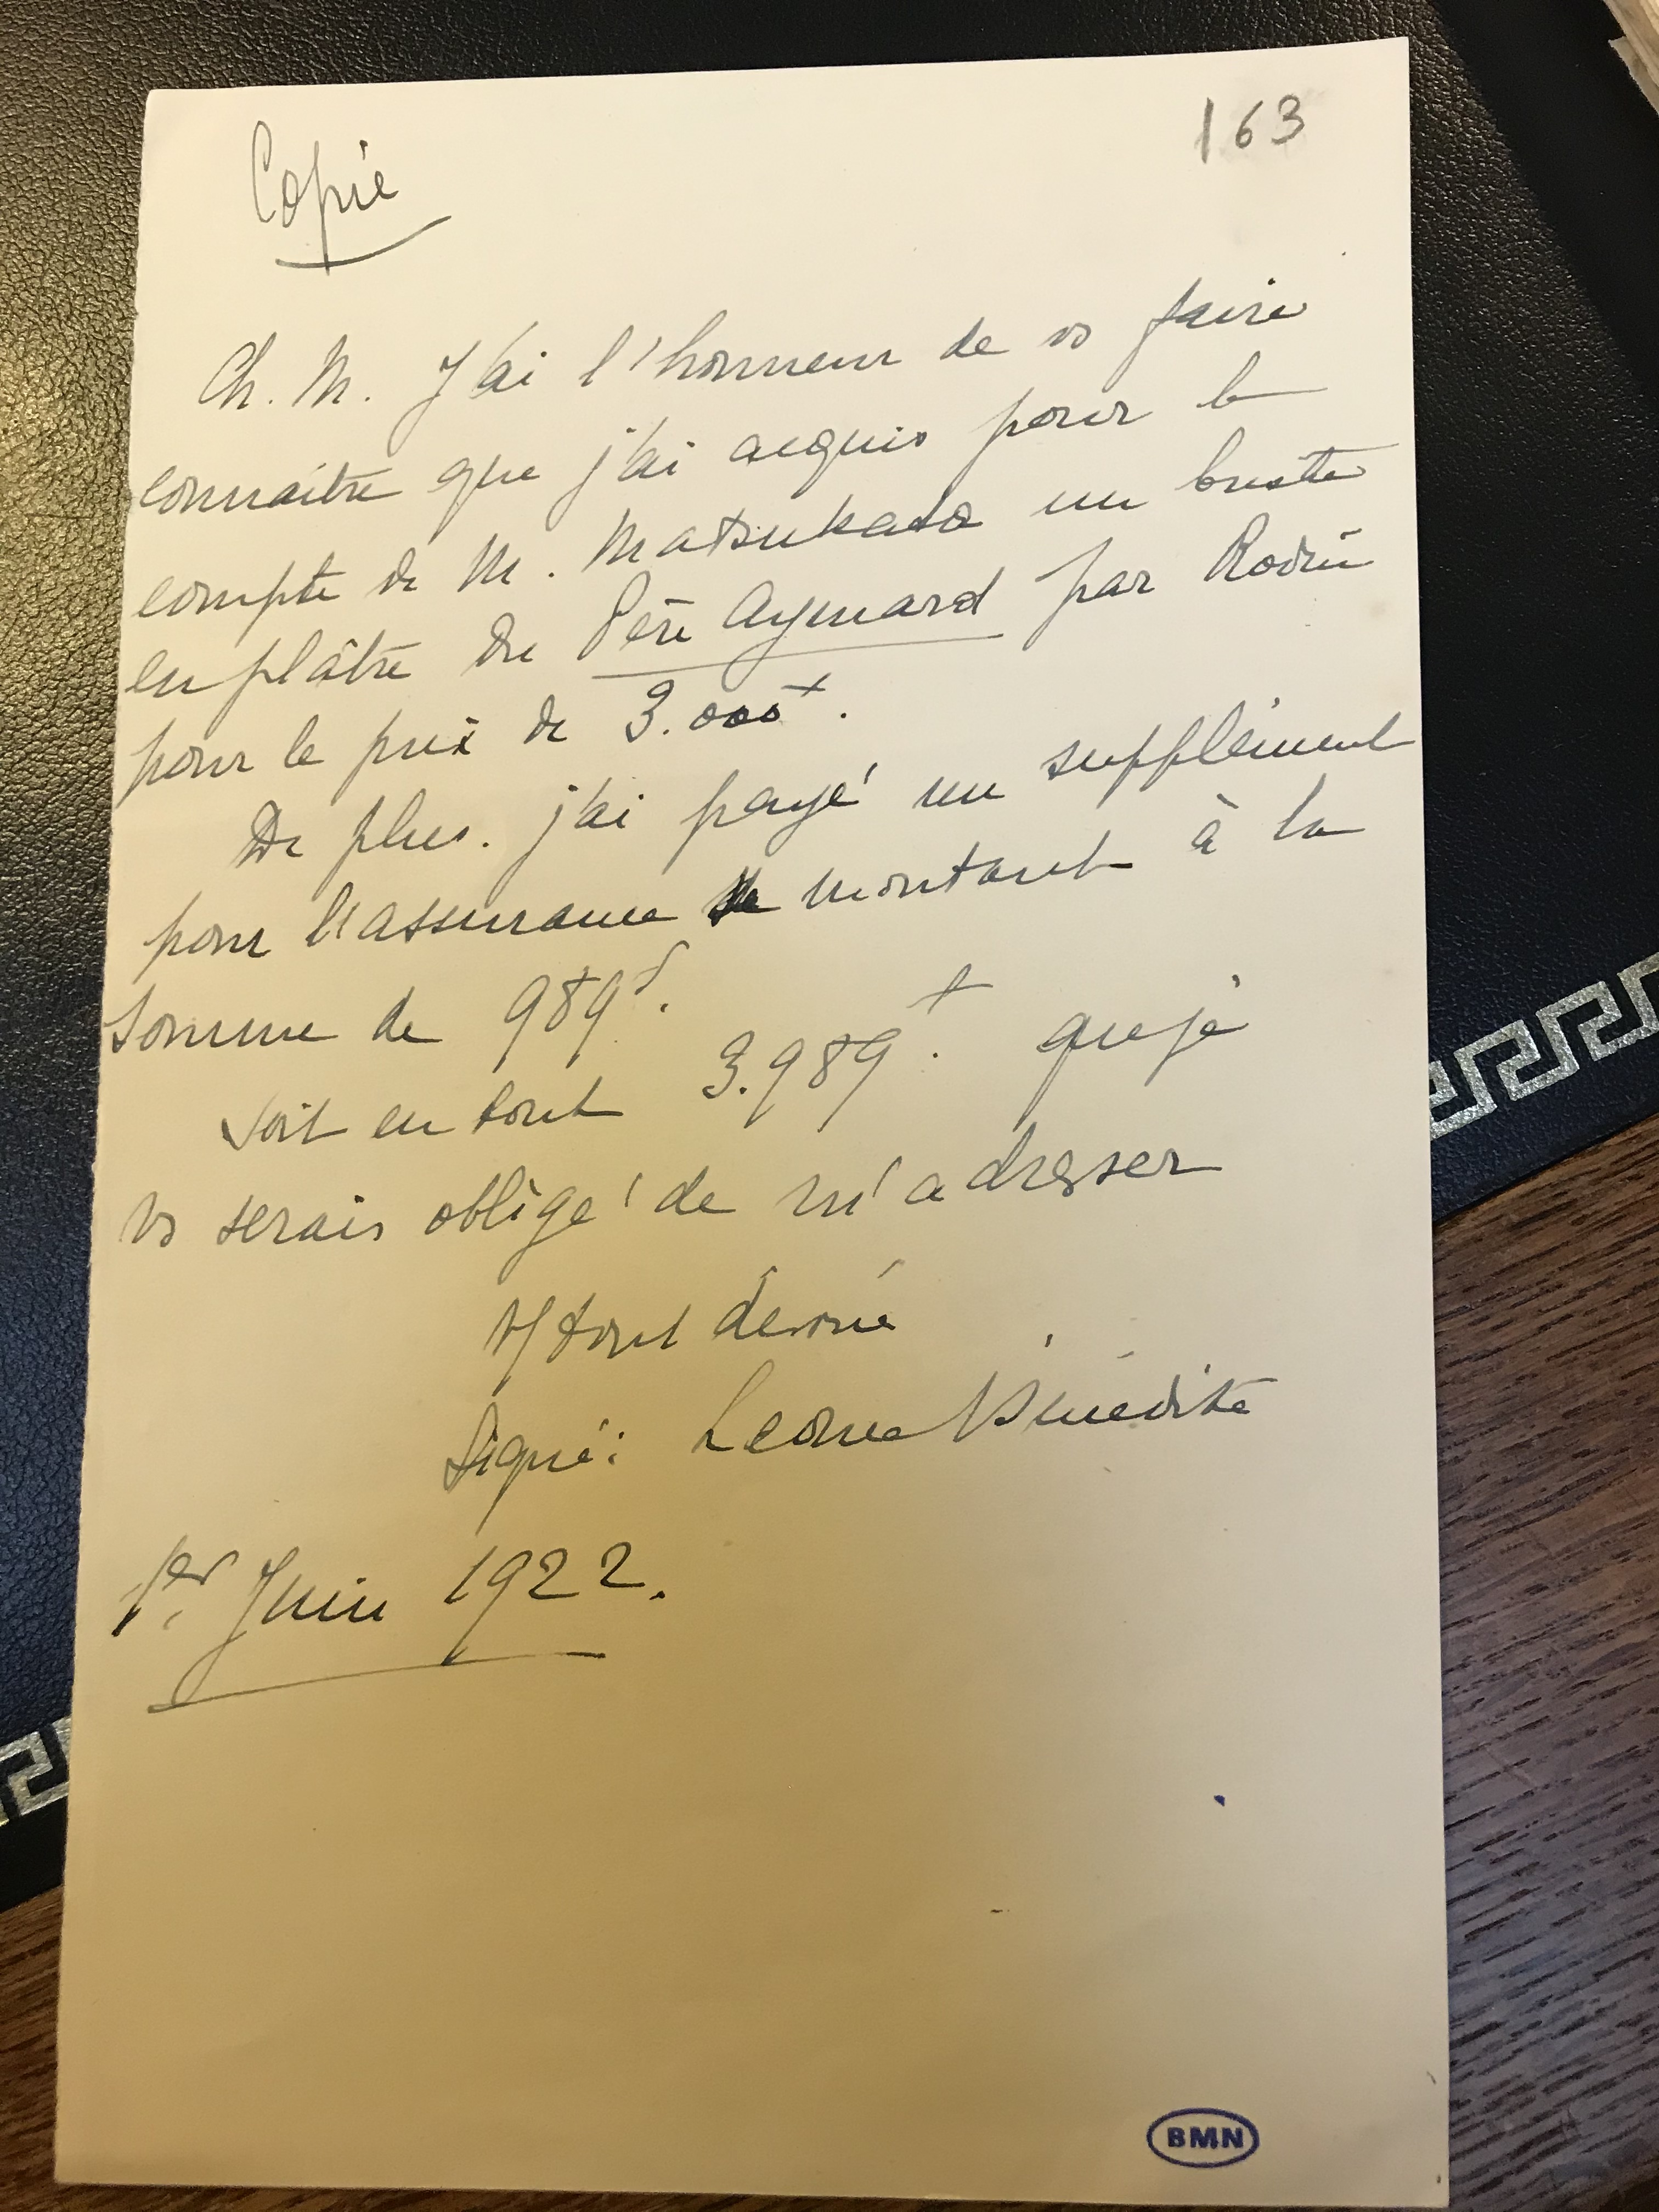 163
Copie
Ch. M. J'ai l'honneur de vs faire
connaitre que j'ai acquis pour le
compte de M. Matsukata un buste
en plâtre du Père Aymard par Rodin
pour le prix de 3.000f.
De plus. j'ai payé un supplément
pour l'assurance montant à la
somme de 989f.
soit en tout 3.989f. que je
vs serais obligé de m'adresser
Vf tout dévoué
Signé: Léonce Bénédite
1er Juin 1922.
BMN